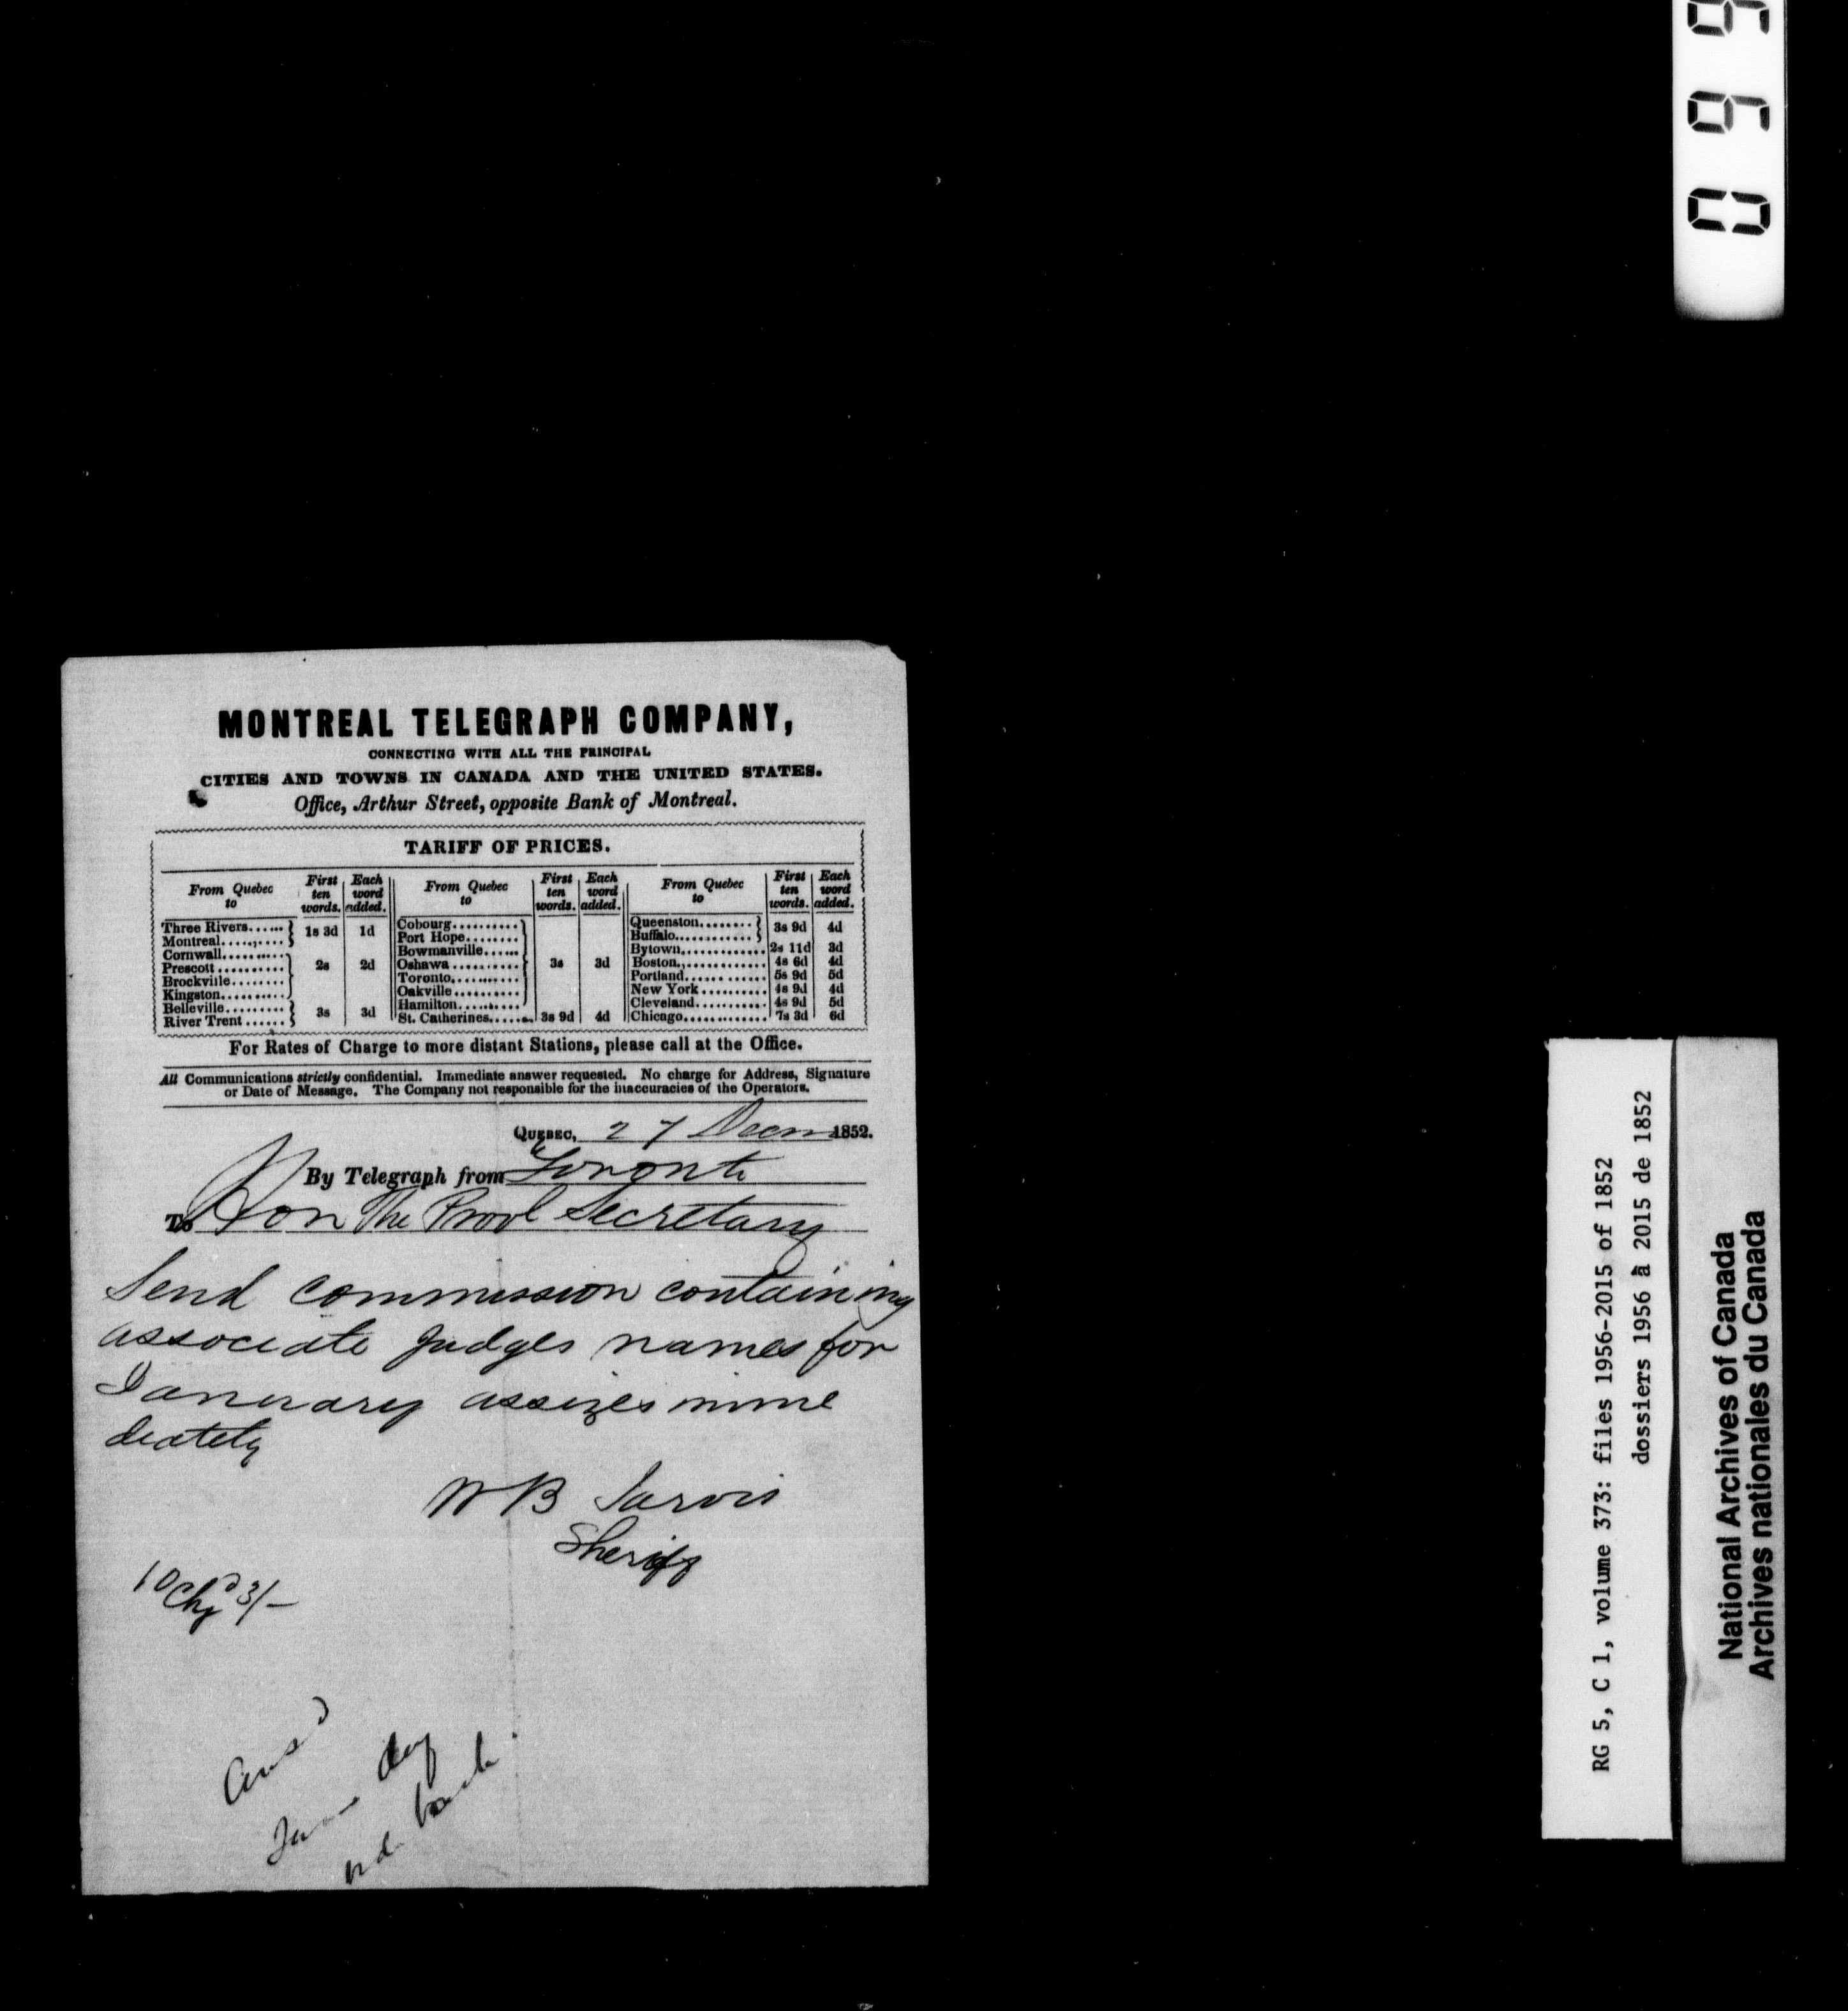 MONTREAL TELEGRAPH COMPANY,
CONNECTING WITH ALL THE PRINCIPAL
CITIES AND TOWNS IN CANADA AND THE UNITED STATES.
Office, Arthur Street, opposite Bank of Montreal.
TARIFF OF PRICES.
From Quebec to First ten words. Each word added. From Quebec to First ten words. Each word added. From Quebec to First ten words. Each word added.
Three Rivers......
Montreal..........
1s 3d 1d
Cornwall..........
Prescott..........
Brockville........
Kingston..........
2s 2d
Belleville.........
River Trent......
3s 3d
Cobourg..........
Port Hope........
Bowmanville......
Oshawa..........
Toronto..........
Oakville..........
Hamilton..........
3s 3d
St. Catherines...... 3s 9d 4d
Queenston........
Buffalo............
3s 9d 4d
Bytown............ 2s 11d 3d
Boston............ 4s 6d 4d
Portland............ 5s 9d 5d
New York.......... 4s 9d 4d
Cleveland.......... 4s 9d 5d
Chicago............ 7s 3d 6d
For Rates of Charge to more distant Stations, please call at the Office.
All Communications strictly confidential. Immediate answer requested. No charge for Address, Signature
or Date of Message. The Company not responsible for the inaccuracies of the Operators.
QUEBEC, 27 Decem 1852.
By Telegraph from Toronto
To Hon The Provl Secretary
Send commission containing
associate Judges names for
January assizes imme
diately
W B Jarvis
Sheriff
10 Chgd 3/-
Ansd
Same day
back
0 6 9
RG 5, C 1, volume 373: files 1956-2015 of 1852
dossiers 1956 à 2015 de 1852
National Archives of Canada
Archives nationales du Canada